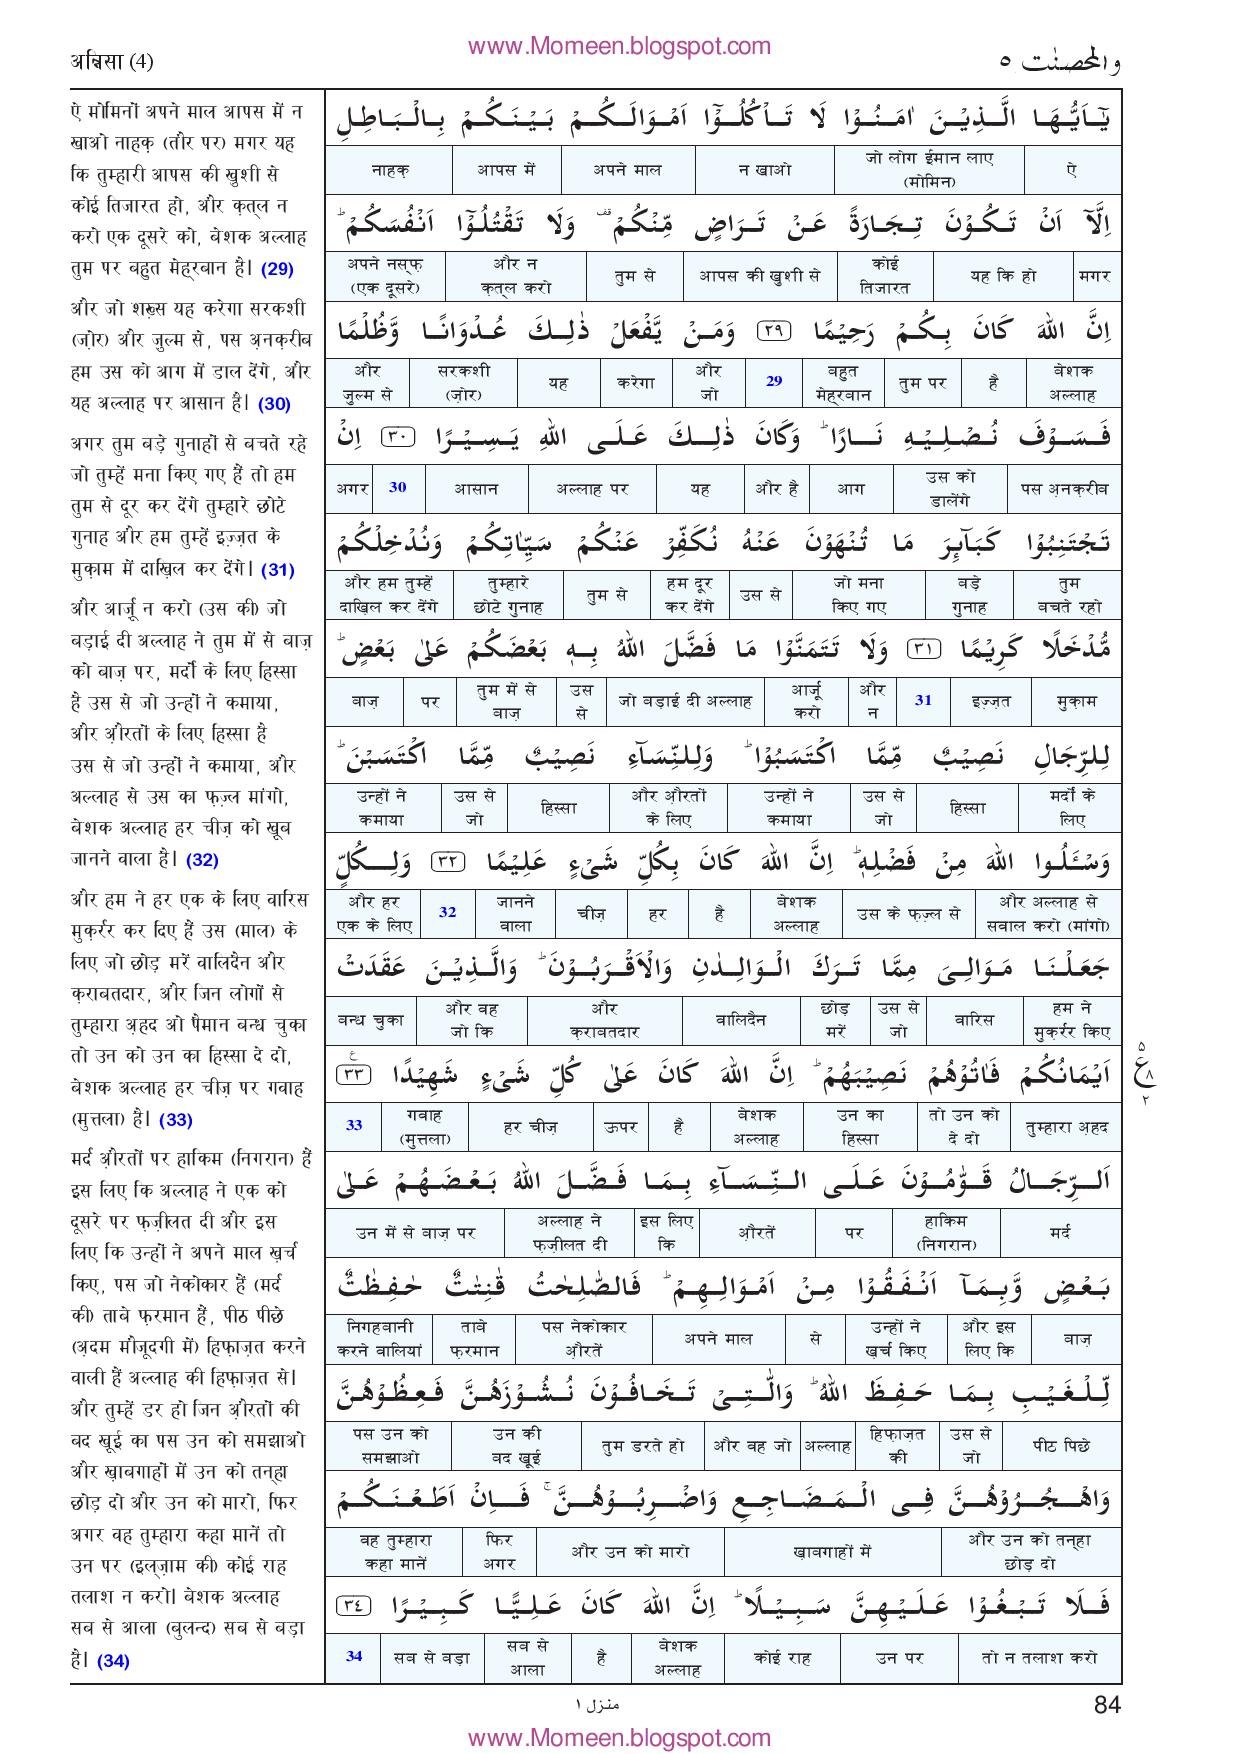 www.Momeen.blogspot.com
अन्निसा (4)
والمحصنٰت ٥
ऐ मोमिनों अपने माल आपस में न
खाओ नाहक़ (तौर पर) मगर यह
कि तुम्हारी आपस की ख़ुशी से
कोई तिजारत हो, और क़त्ल न
करो एक दूसरे को, बेशक अल्लाह
तुम पर बहुत मेह्रबान है। (29)
और जो शख़्स यह करेगा सरकशी
(ज़ोर) और ज़ुल्म से, पस अ़नक़रीब
हम उस को आग में डाल देंगे, और
यह अल्लाह पर आसान है। (30)
अगर तुम बड़े गुनाहों से बचते रहे
जो तुम्हें मना किए गए हैं तो हम
तुम से दूर कर देंगे तुम्हारे छोटे
गुनाह और हम तुम्हें इज़्ज़त के
मुक़ाम में दाख़िल कर देंगे। (31)
और आर्ज़ू न करो (उस की) जो
बड़ाई दी अल्लाह ने तुम में से बाज़
को बाज़ पर, मर्दों के लिए हिस्सा
है उस से जो उन्हों ने कमाया,
और औ़रतों के लिए हिस्सा है
उस से जो उन्हों ने कमाया, और
अल्लाह से उस का फ़ज़्ल मांगो,
बेशक अल्लाह हर चीज़ को ख़ूब
जानने वाला है। (32)
और हम ने हर एक के लिए वारिस
मुक़र्रर कर दिए हैं उस (माल) के
लिए जो छोड़ मरें वालिदैन और
क़राबतदार, और जिन लोगों से
तुम्हारा अ़हद ओ पैमान बन्ध चुका
तो उन को उन का हिस्सा दे दो,
बेशक अल्लाह हर चीज़ पर गवाह
(मुत्तला) है। (33)
मर्द औ़रतों पर हाकिम (निगरान) हैं
इस लिए कि अल्लाह ने एक को
दूसरे पर फ़ज़ीलत दी और इस
लिए कि उन्हों ने अपने माल ख़र्च
किए, पस जो नेकोकार हैं (मर्द
की) ताबे फ़रमान हैं, पीठ पीछे
(अ़दम मौजूदगी में) हिफ़ाज़त करने
वाली हैं अल्लाह की हिफ़ाज़त से।
और तुम्हें डर हो जिन औ़रतों की
बद ख़ूई का पस उन को समझाओ
और ख़ाबगाहों में उन को तन्हा
छोड़ दो और उन को मारो, फिर
अगर वह तुम्हारा कहा मानें तो
उन पर (इल्ज़ाम की) कोई राह
तलाश न करो। बेशक अल्लाह
सब से आला (बुलन्द) सब से बड़ा
है। (34)
يٰٓاَيُّهَا الَّذِيْنَ اٰمَنُوْا لَا تَاْكُلُوْٓا اَمْوَالَكُمْ بَيْنَكُمْ بِالْبَاطِلِ
ऐ | जो लोग ईमान लाए (मोमिन) | न खाओ | अपने माल | आपस में | नाहक़
اِلَّآ اَنْ تَكُوْنَ تِجَارَةً عَنْ تَرَاضٍ مِّنْكُمْ ۟ۚ وَلَا تَقْتُلُوْٓا اَنْفُسَكُمْ ؕ
मगर | यह कि हो | कोई तिजारत | आपस की ख़ुशी से | तुम से | और न क़त्ल करो | अपने नस्फ़ (एक दूसरे)
اِنَّ اللهَ كَانَ بِكُمْ رَحِيْمًا ﴿٢٩﴾ وَمَنْ يَّفْعَلْ ذٰلِكَ عُدْوَانًا وَّظُلْمًا
बेशक अल्लाह | है | तुम पर | बहुत मेह्रबान | 29 | और जो | करेगा | यह | सरकशी (ज़ोर) | और ज़ुल्म से
فَسَوْفَ نُصْلِيْهِ نَارًا ؕ وَكَانَ ذٰلِكَ عَلَى اللهِ يَسِيْرًا ﴿٣٠﴾ اِنْ
पस अ़नक़रीब | उस को डालेंगे | आग | और है | यह | अल्लाह पर | आसान | 30 | अगर
تَجْتَنِبُوْا كَبَآىِٕرَ مَا تُنْهَوْنَ عَنْهُ نُكَفِّرْ عَنْكُمْ سَيِّاٰتِكُمْ وَنُدْخِلْكُمْ
तुम बचते रहो | बड़े गुनाह | जो मना किए गए | उस से | हम दूर कर देंगे | तुम से | तुम्हारे छोटे गुनाह | और हम तुम्हें दाख़िल कर देंगे
مُّدْخَلًا كَرِيْمًا ﴿٣١﴾ وَلَا تَتَمَنَّوْا مَا فَضَّلَ اللهُ بِهٖ بَعْضَكُمْ عَلٰى بَعْضٍ ؕ
मुक़ाम | इज़्ज़त | 31 | और न | आर्ज़ू करो | जो बड़ाई दी अल्लाह | उस से | तुम में से बाज़ | पर | बाज़
لِلرِّجَالِ نَصِيْبٌ مِّمَّا اكْتَسَبُوْا ؕ وَلِلنِّسَآءِ نَصِيْبٌ مِّمَّا اكْتَسَبْنَ ؕ
मर्दों के लिए | हिस्सा | उस से जो | उन्हों ने कमाया | और औ़रतों के लिए | हिस्सा | उस से जो | उन्हों ने कमाया
وَسْـَٔلُوا اللهَ مِنْ فَضْلِهٖ ؕ اِنَّ اللهَ كَانَ بِكُلِّ شَىْءٍ عَلِيْمًا ﴿٣٢﴾ وَلِكُلٍّ
और अल्लाह से सवाल करो (मांगो) | उस के फ़ज़्ल से | बेशक अल्लाह | है | हर | चीज़ | जानने वाला | 32 | और हर एक के लिए
جَعَلْنَا مَوَالِىَ مِمَّا تَرَكَ الْوَالِدٰنِ وَالْاَقْرَبُوْنَ ؕ وَالَّذِيْنَ عَقَدَتْ
हम ने मुक़र्रर किए | वारिस | उस से जो | छोड़ मरें | वालिदैन | और क़राबतदार | और वह जो कि | बन्ध चुका
اَيْمَانُكُمْ فَاٰتُوْهُمْ نَصِيْبَهُمْ ؕ اِنَّ اللهَ كَانَ عَلٰى كُلِّ شَىْءٍ شَهِيْدًا ﴿٣٣﴾ ع
٥ ع ٨ ٢
तुम्हारा अ़हद | तो उन को दे दो | उन का हिस्सा | बेशक अल्लाह | है | ऊपर | हर चीज़ | गवाह (मुत्तला) | 33
اَلرِّجَالُ قَوّٰمُوْنَ عَلَى النِّسَآءِ بِمَا فَضَّلَ اللهُ بَعْضَهُمْ عَلٰى
मर्द | हाकिम (निगरान) | पर | औ़रतें | इस लिए कि | अल्लाह ने फ़ज़ीलत दी | उन में से बाज़ पर
بَعْضٍ وَّبِمَآ اَنْفَقُوْا مِنْ اَمْوَالِهِمْ ؕ فَالصّٰلِحٰتُ قٰنِتٰتٌ حٰفِظٰتٌ
बाज़ | और इस लिए कि | उन्हों ने ख़र्च किए | से | अपने माल | पस नेकोकार औ़रतें | ताबे फ़रमान | निगहबानी करने वालियां
لِّلْغَيْبِ بِمَا حَفِظَ اللهُ ؕ وَالّٰتِىْ تَخَافُوْنَ نُشُوْزَهُنَّ فَعِظُوْهُنَّ
पीठ पिछे | उस से जो | हिफ़ाज़त की | अल्लाह | और वह जो | तुम डरते हो | उन की बद ख़ूई | पस उन को समझाओ
وَاهْجُرُوْهُنَّ فِى الْمَضَاجِعِ وَاضْرِبُوْهُنَّ ۚ فَاِنْ اَطَعْنَكُمْ
और उन को तन्हा छोड़ दो | ख़ाबगाहों में | और उन को मारो | फिर अगर | वह तुम्हारा कहा मानें
فَلَا تَبْغُوْا عَلَيْهِنَّ سَبِيْلًا ؕ اِنَّ اللهَ كَانَ عَلِيًّا كَبِيْرًا ﴿٣٤﴾
तो न तलाश करो | उन पर | कोई राह | बेशक अल्लाह | है | सब से आला | सब से बड़ा | 34
منزل ١
84
www.Momeen.blogspot.com